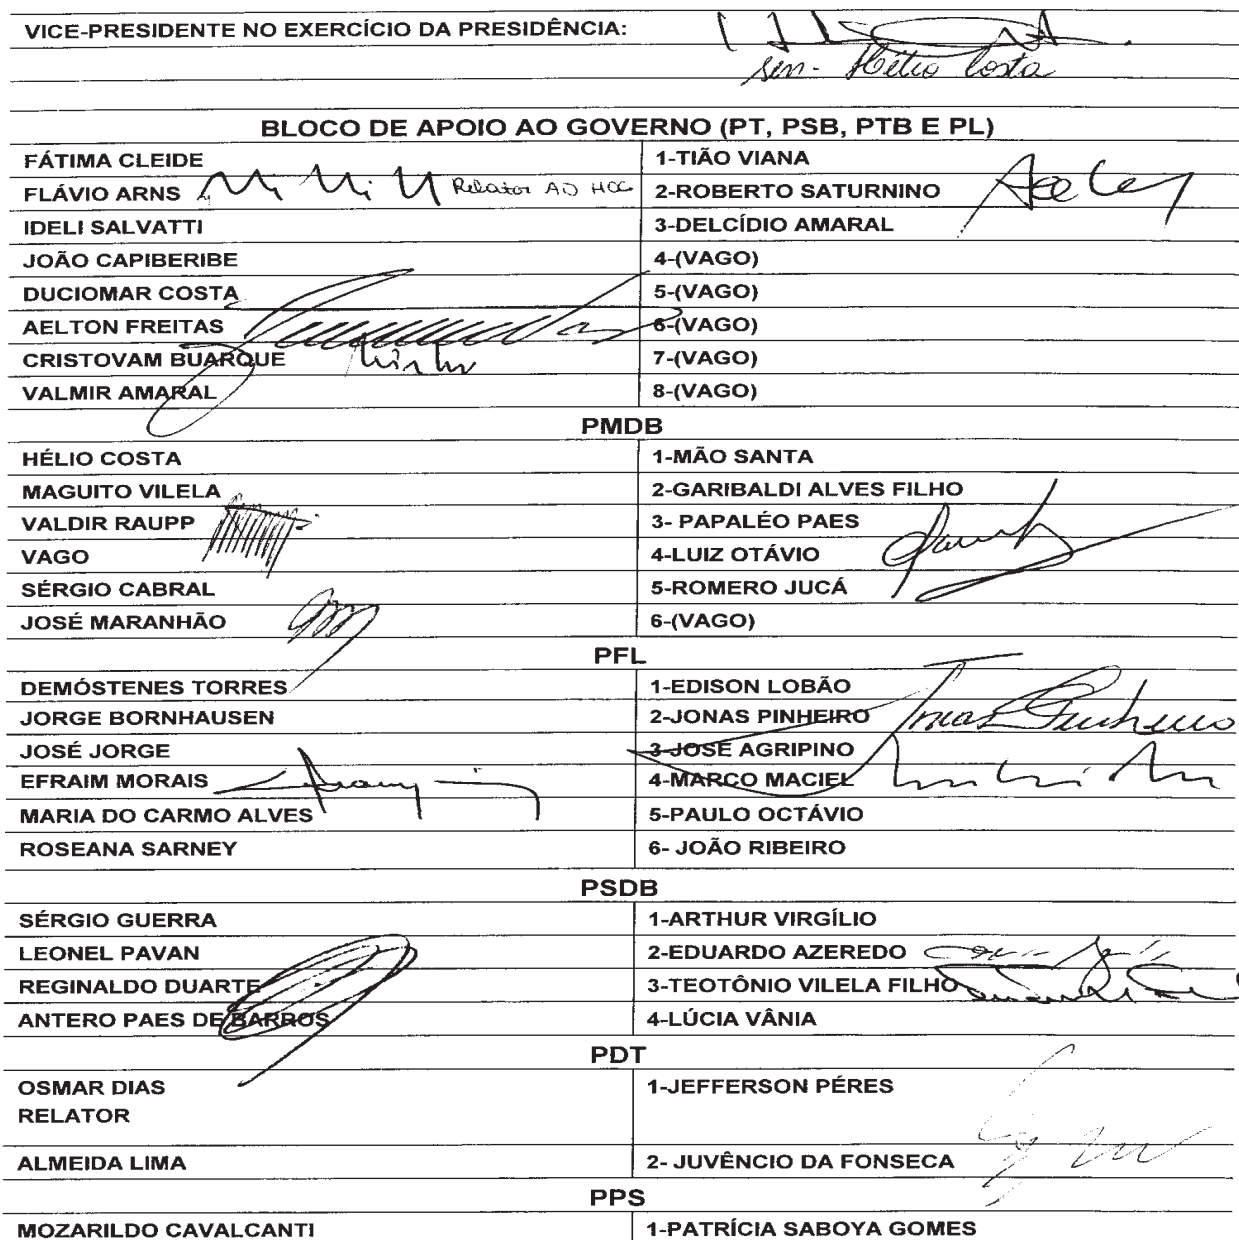 VICE-PRESIDENTE NO EXERCÍCIO DA PRESIDÊNCIA:
sen- Hélio Costa
BLOCO DE APOIO AO GOVERNO (PT, PSB, PTB E PL)
FÁTIMA CLEIDE 1-TIÃO VIANA
FLÁVIO ARNS Relator AD HOC 2-ROBERTO SATURNINO
IDELI SALVATTI 3-DELCÍDIO AMARAL
JOÃO CAPIBERIBE 4-(VAGO)
DUCIOMAR COSTA 5-(VAGO)
AELTON FREITAS 6-(VAGO)
CRISTOVAM BUARQUE 7-(VAGO)
VALMIR AMARAL 8-(VAGO)
PMDB
HÉLIO COSTA 1-MÃO SANTA
MAGUITO VILELA 2-GARIBALDI ALVES FILHO
VALDIR RAUPP 3- PAPALÉO PAES
VAGO 4-LUIZ OTÁVIO
SÉRGIO CABRAL 5-ROMERO JUCÁ
JOSÉ MARANHÃO 6-(VAGO)
PFL
DEMÓSTENES TORRES 1-EDISON LOBÃO
JORGE BORNHAUSEN 2-JONAS PINHEIRO Jonas Pinheiro
JOSÉ JORGE 3-JOSÉ AGRIPINO
EFRAIM MORAIS 4-MARCO MACIEL
MARIA DO CARMO ALVES 5-PAULO OCTÁVIO
ROSEANA SARNEY 6- JOÃO RIBEIRO
PSDB
SÉRGIO GUERRA 1-ARTHUR VIRGÍLIO
LEONEL PAVAN 2-EDUARDO AZEREDO
REGINALDO DUARTE 3-TEOTÔNIO VILELA FILHO
ANTERO PAES DE BARROS 4-LÚCIA VÂNIA
PDT
OSMAR DIAS 1-JEFFERSON PÉRES
RELATOR
ALMEIDA LIMA 2- JUVÊNCIO DA FONSECA
PPS
MOZARILDO CAVALCANTI 1-PATRÍCIA SABOYA GOMES